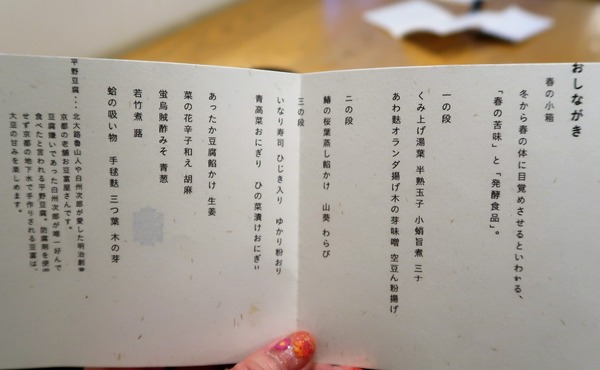 おしながき
春の小箱
冬から春の体に目覚めさせるといわれる、
「春の苦味」と「発酵食品」。
一の段
くみ上げ湯葉 半熟玉子 小蛸旨煮 三ナ
あわ麩オランダ揚げ木の芽味噌 空豆ん粉揚げ
二の段
鰆の桜葉蒸し餡かけ 山葵 わらび
三の段
いなり寿司 ひじき入り ゆかり粉おり
青高菜おにぎり ひの菜漬けおにぎい
あったか豆腐餡かけ 生姜
菜の花辛子和え 胡麻
蛍烏賊酢みそ 青葱
若竹煮 蕗
蛤の吸い物 手毬麩 三つ葉 木の芽
平野豆腐・・・北大路魯山人や白州次郎が愛した明治創業
京都の老舗お豆腐屋さんです。
豆腐嫌いであった白州次郎が唯一好んで
食べたと言われる平野豆腐。防腐剤を使用
せず京都の地下水で手作りされる豆腐は、
大豆の甘みを楽しめます。